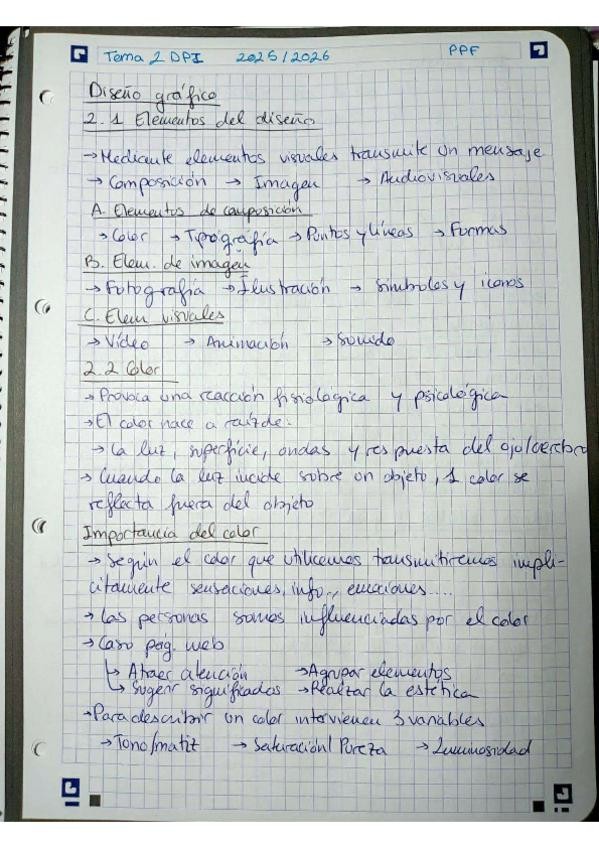 Tema 2 DPI 2025/2026 PPF
Diseño gráfico
2.1 Elementos del diseño
→Mediante elementos visuales transmite un mensaje
→Composición → Imagen → Audiovisuales
A. Elementos de composición
→Color →Tipografía →Puntos y líneas →Formas
B. Elem. de imagen
→Fotografía →Ilustración → Símbolos y iconos
C. Elem visuales
→Vídeo → Animación →Sonido
2.2 Color
→Provoca una reacción fisiológica y psicológica
→El color nace a raíz de:
→La luz, superficie, ondas y respuesta del ojo/cerebro
→Cuando la luz incide sobre un objeto, 1 color se
reflecta fuera del objeto
Importancia del color
→Según el color que utilicemos transmitiremos impli-
citamente sensaciones, info., emociones....
→Las personas somos influenciadas por el color
→Caso pág. web
↳ Atraer atención →Agrupar elementos
↳ Sugerir significados →Realzar la estética
→Para describir un color intervienen 3 variables
→Tono/matiz →Saturación/Pureza →Luminosidad